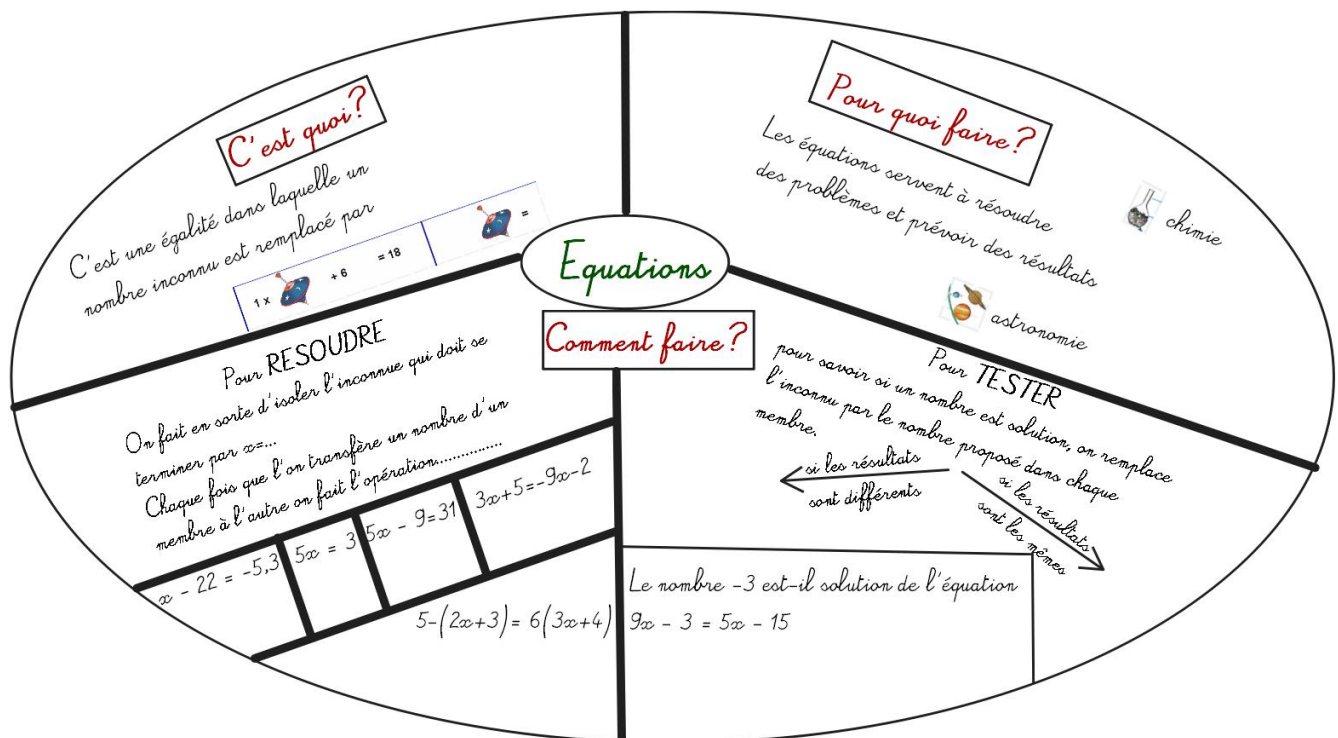 C'est quoi?
C'est une égalité dans laquelle un
nombre inconnu est remplacé par
1 x + 6 = 18 =
Pour quoi faire?
Les équations servent à résoudre
des problèmes et prévoir des résultats
chimie
astronomie
Equations
Comment faire?
Pour RESOUDRE
On fait en sorte d'isoler l'inconnue qui doit se
terminer par x=...
Chaque fois que l'on transfère un nombre d'un
membre à l'autre on fait l'opération...............
x - 22 = -5,3
5x = 3
5x - 9=31
3x+5=-9x-2
5-(2x+3)= 6(3x+4)
Pour TESTER
pour savoir si un nombre est solution, on remplace
l'inconnu par le nombre proposé dans chaque
membre.
si les résultats
sont différents
si les résultats
sont les mêmes
Le nombre -3 est-il solution de l'équation
9x - 3 = 5x - 15